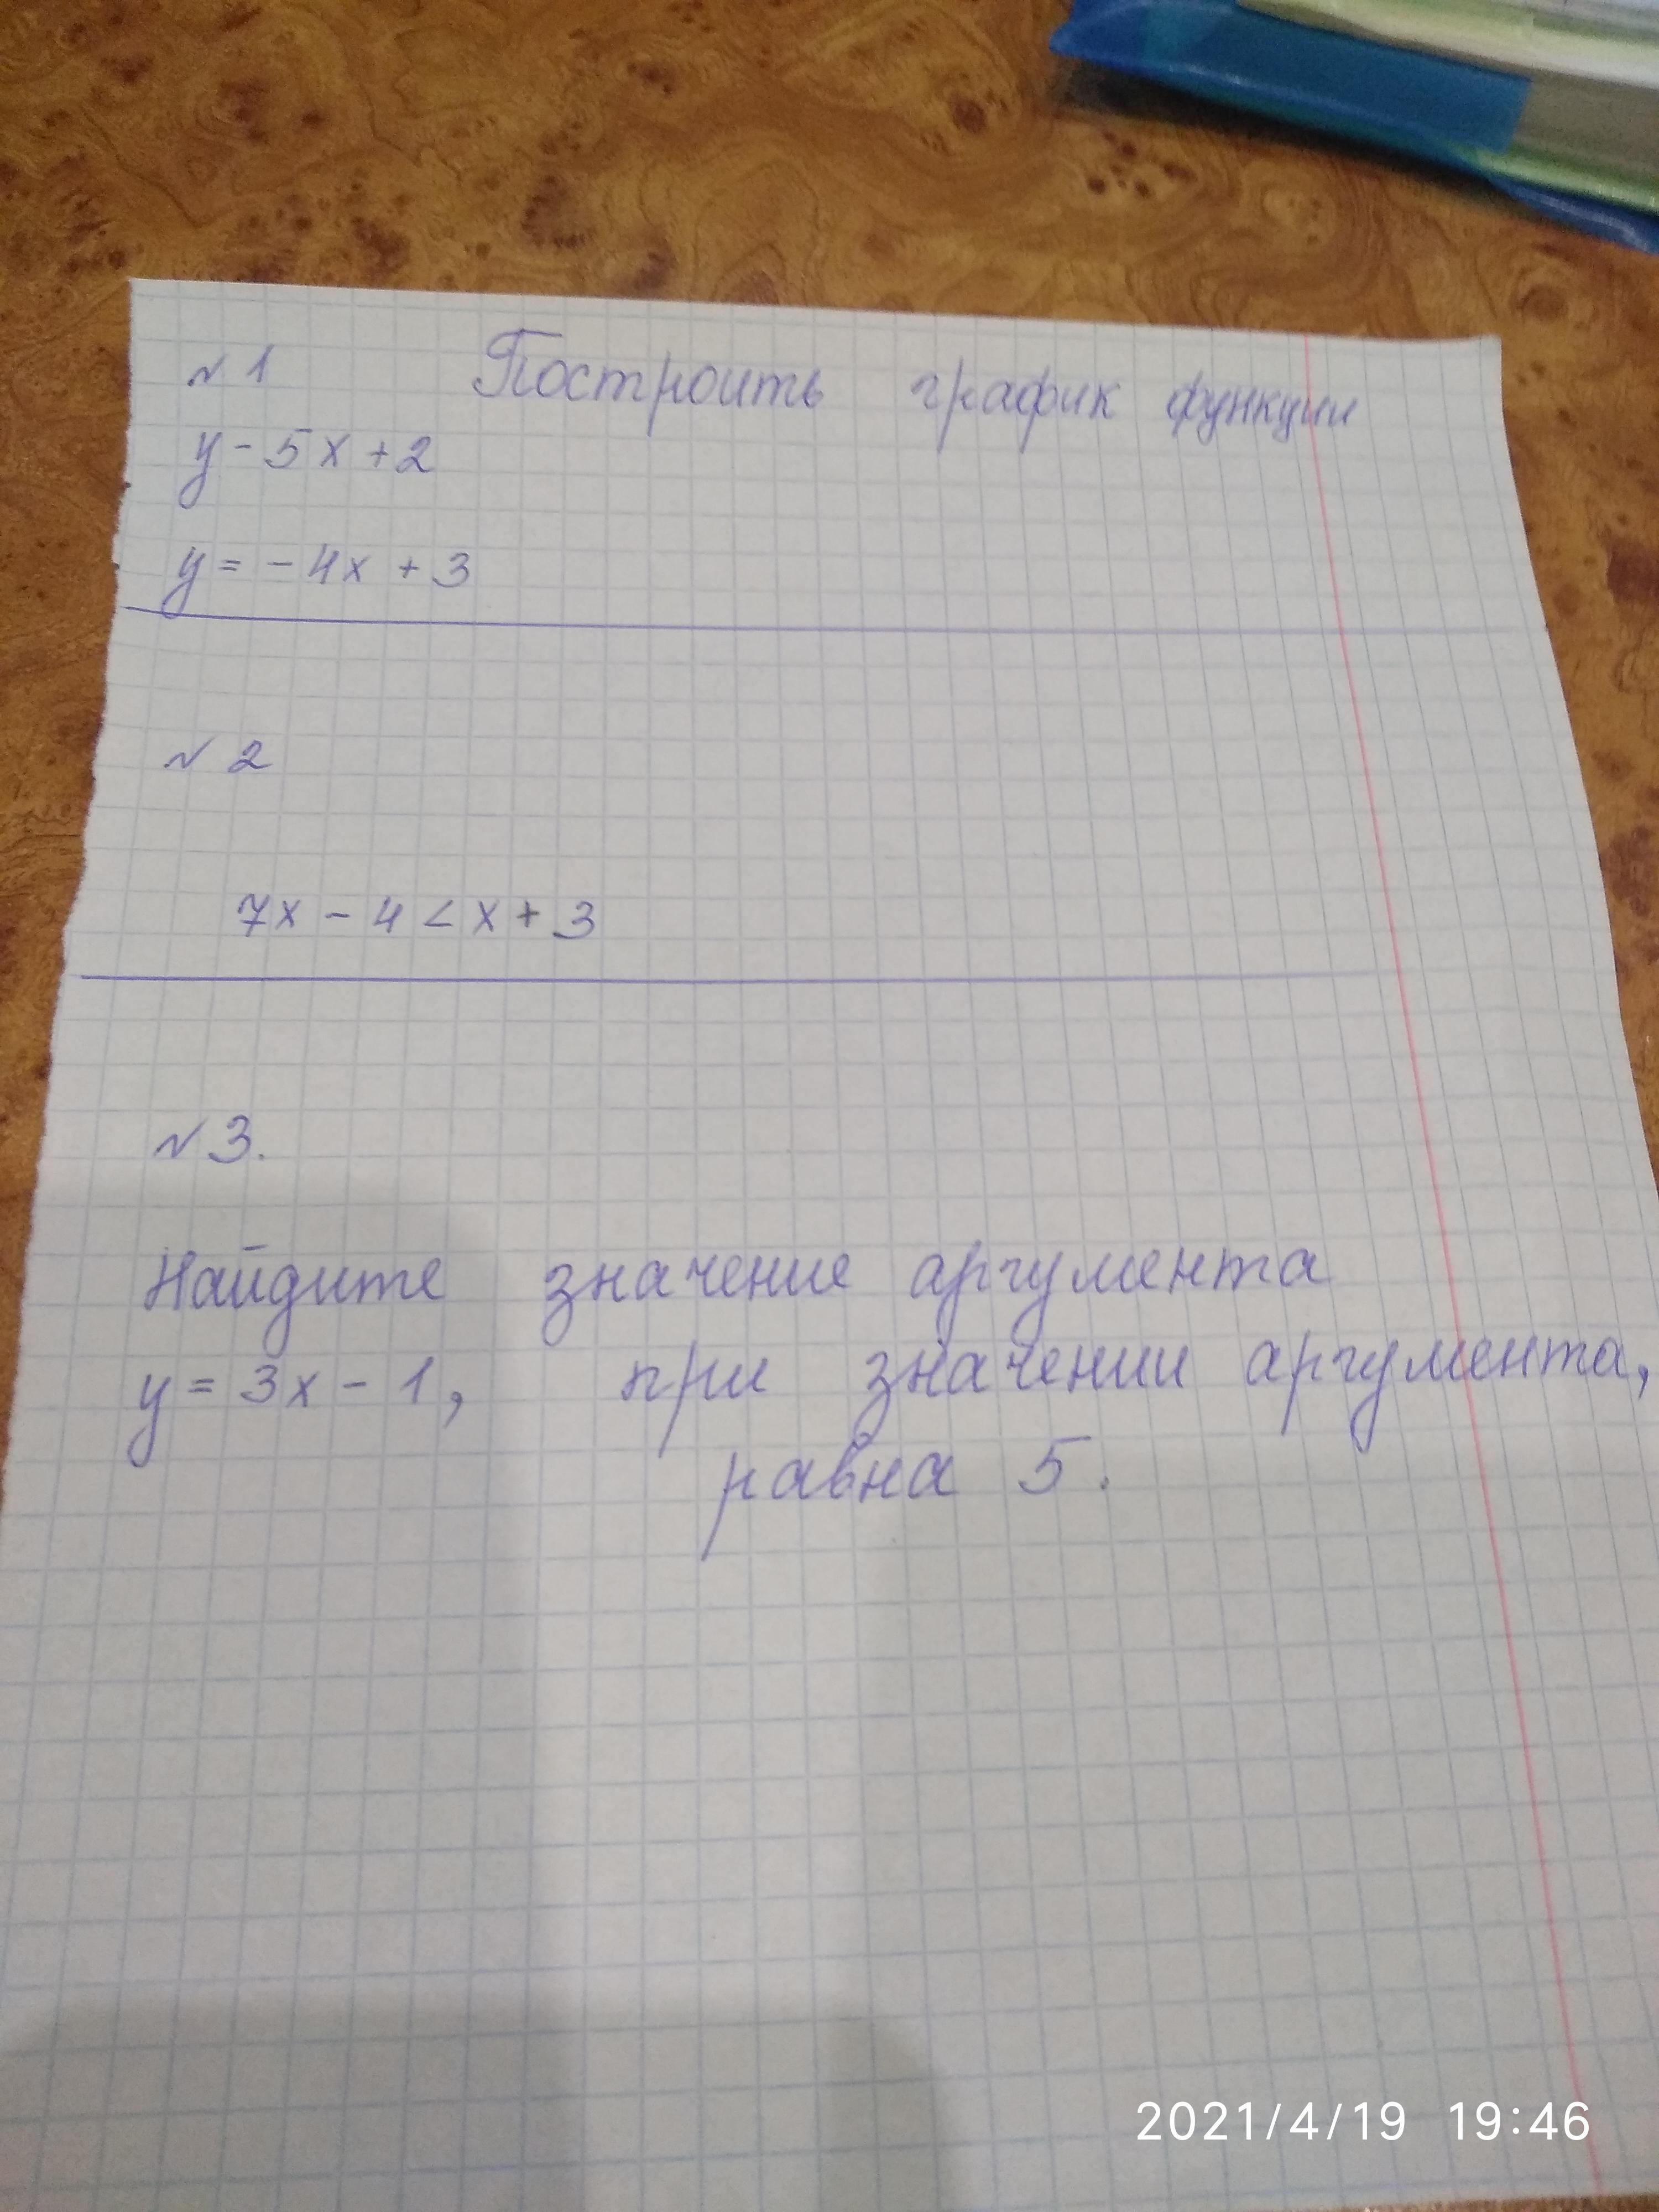 №1 Построить график функции
y-5x+2
y=-4x+3
№2
7x-4<x+3
№3.
Найдите значение аргумента
y=3x-1, при значении аргумента,
равна 5.
2021/4/19 19:46